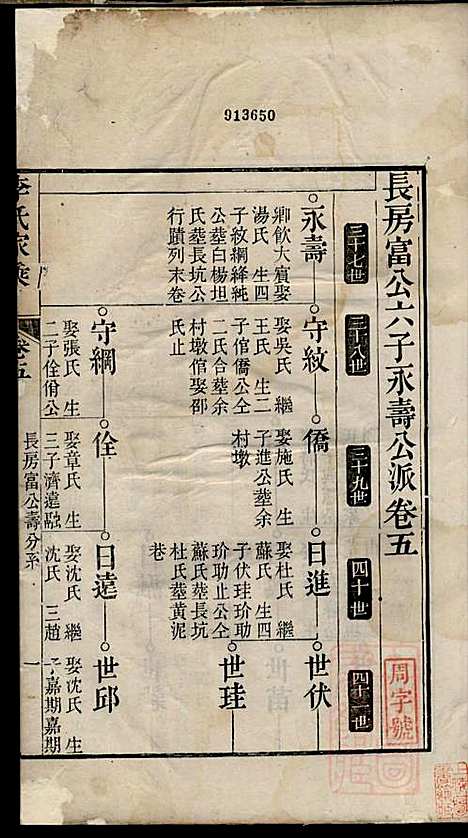 913650
長房富公六子永壽公派卷五
三十七世
三十八世
三十九世
四十世
四十一世
周字號
永壽
守紋
僑
日進
世伏
卿飲大賓娶
湯氏 生四
子紋綱絳純
公塟白楊坦
氏塟長坑公
行蹟列末卷
娶吳氏 繼
王氏 生二
子倌僑公仝
二氏合塟余
村墩倌娶邵
氏止
娶施氏 生
子進公塟余
村墩
娶杜氏 繼
蘇氏 生四
子伏珪玠助
玠助止公仝
蘇氏塟長坑
杜氏塟黃泥
巷
世珪
守綱
佺
日逵
世邱
娶張氏 生
二子佺佾公
娶章氏 生
三子濟逵融
娶沈氏 繼
沈氏 三趙
娶沈氏 生
子嘉期嘉期
李氏家乘
卷五
長房富公壽分系
一